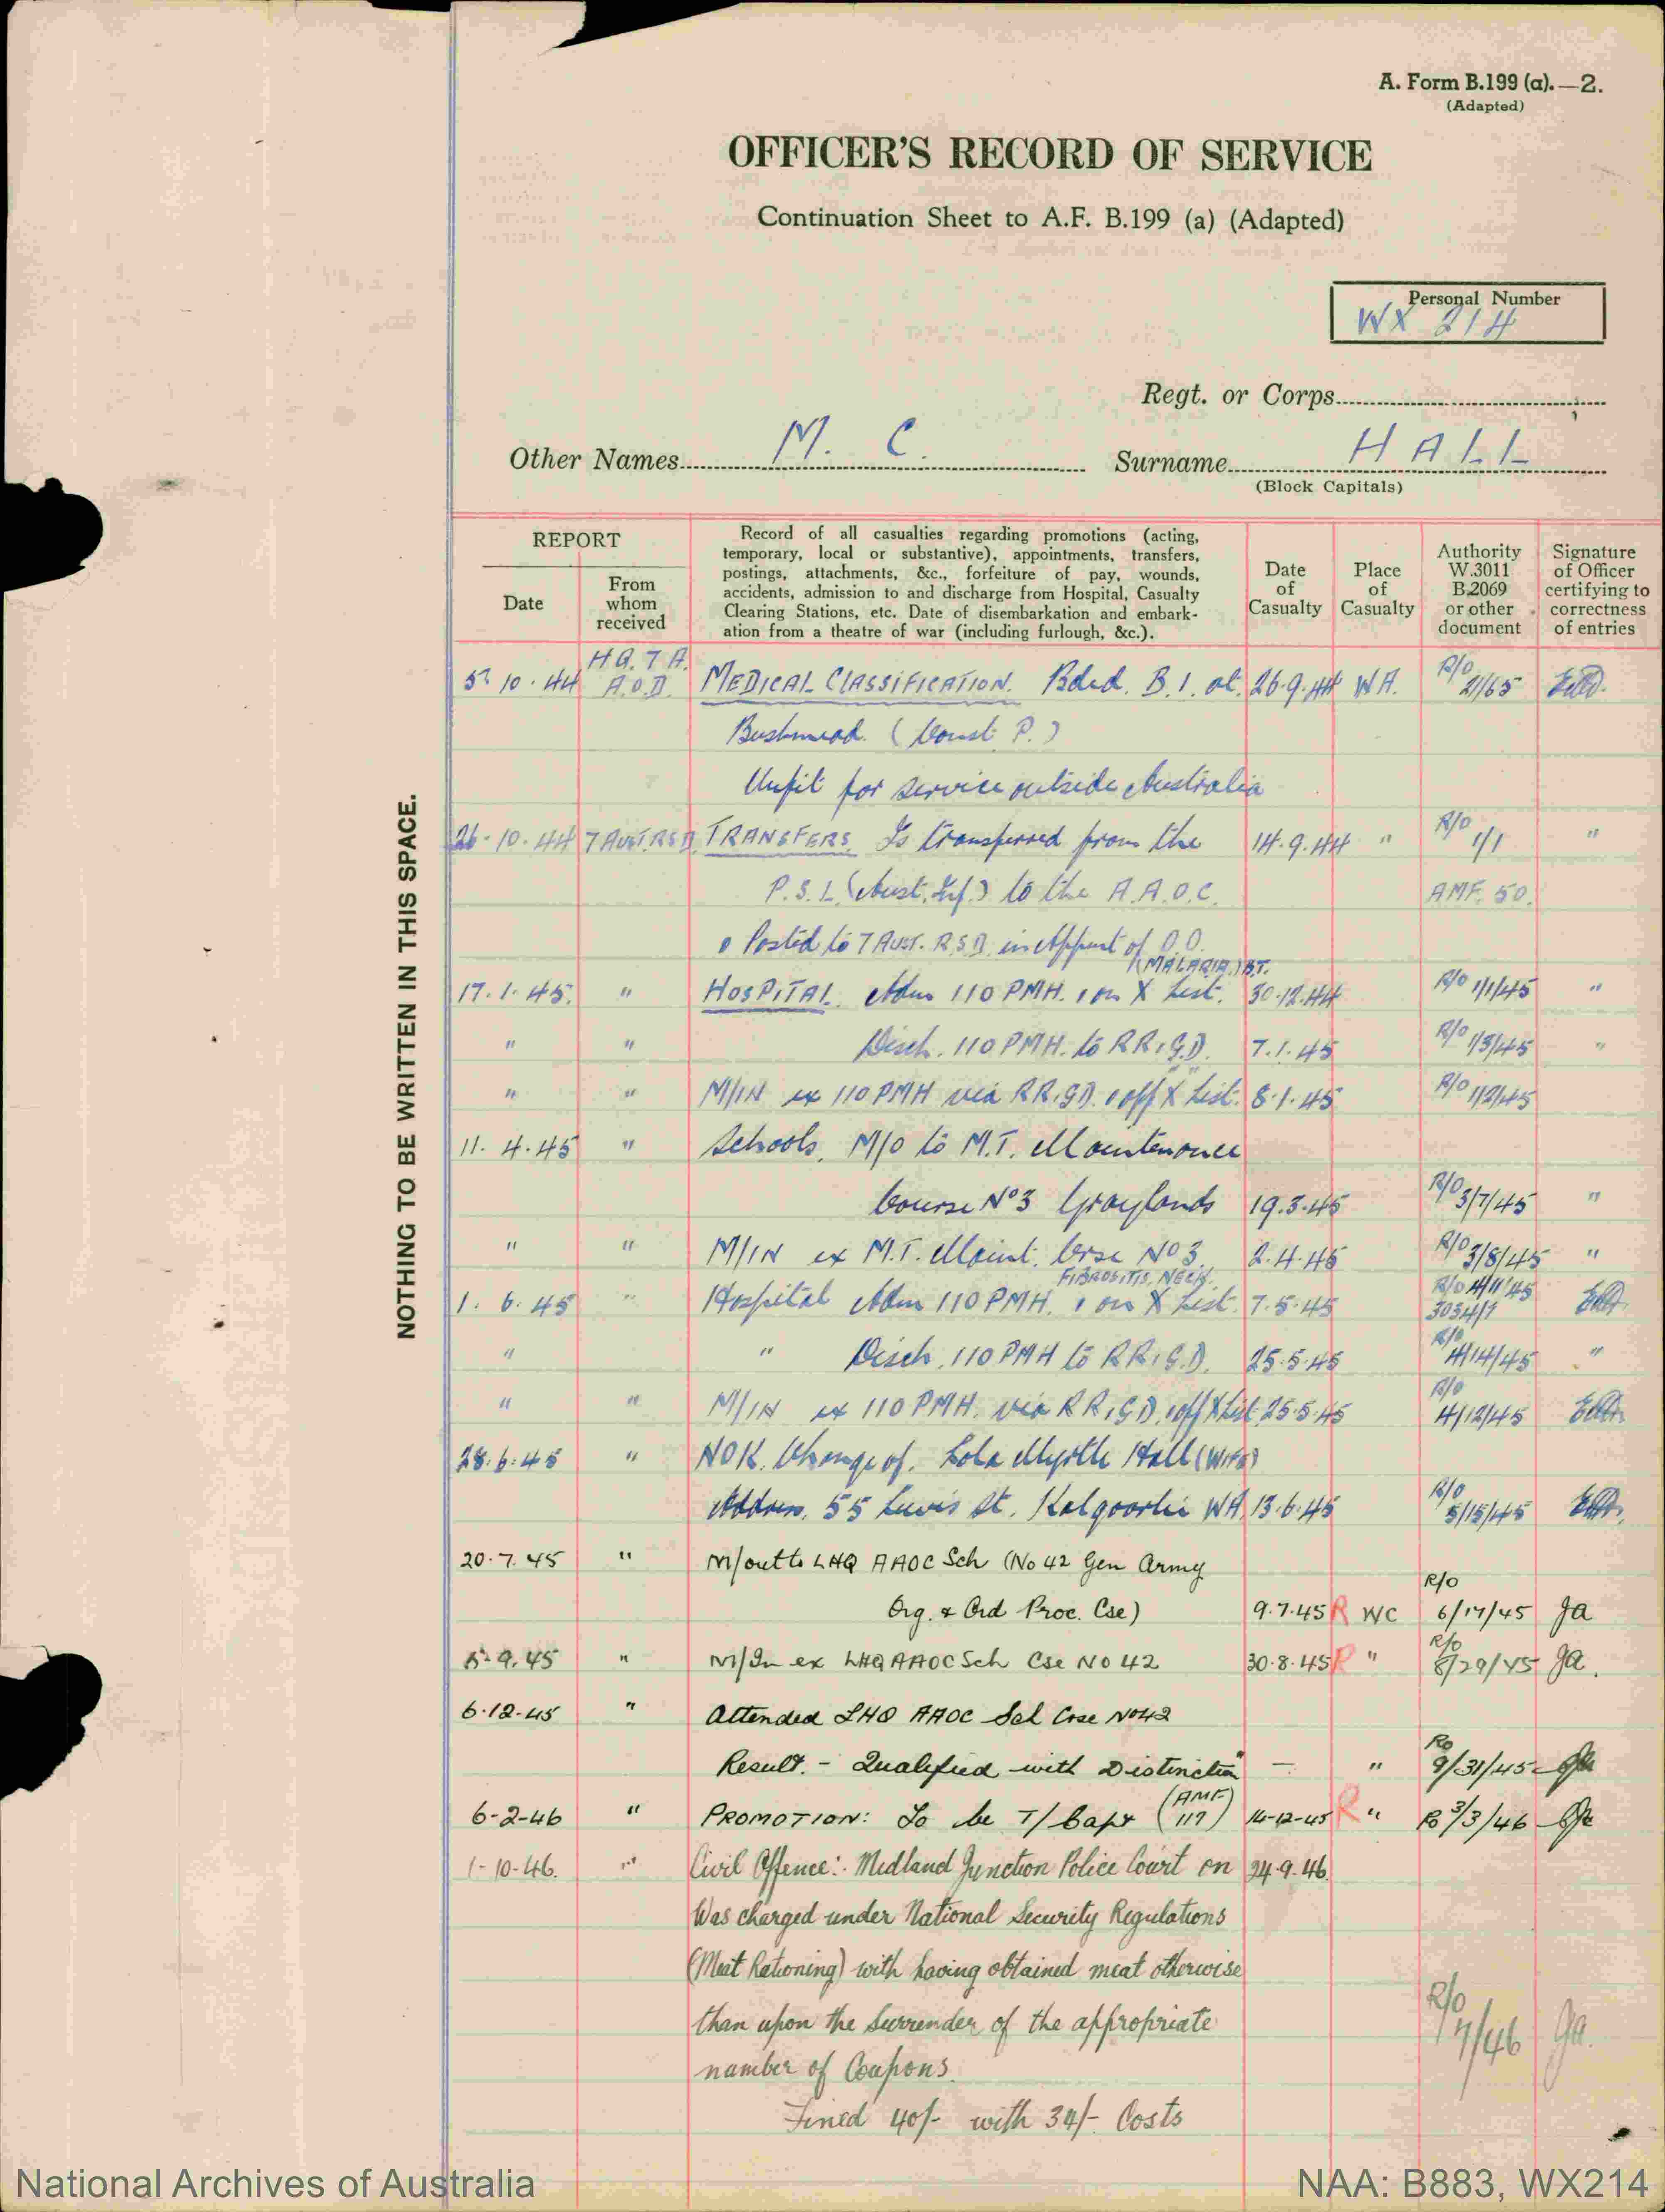 A. Form B.199 (a).—2.
(Adapted)
OFFICER'S RECORD OF SERVICE
Continuation Sheet to A.F. B.199 (a) (Adapted)
Personal Number
WX 214
Regt. or Corps
Other Names M. C. Surname HALL
(Block Capitals)
NOTHING TO BE WRITTEN IN THIS SPACE.
REPORT
Date
From whom received
Record of all casualties regarding promotions (acting,
temporary, local or substantive), appointments, transfers,
postings, attachments, &c., forfeiture of pay, wounds,
accidents, admission to and discharge from Hospital, Casualty
Clearing Stations, etc. Date of disembarkation and embark-
ation from a theatre of war (including furlough, &c.).
Date of Casualty
Place of Casualty
Authority W.3011 B.2069 or other document
Signature of Officer certifying to correctness of entries
HQ. 7 A.
10.44 A.O.D. MEDICAL CLASSIFICATION. Bded. B.1. at 26.9.44 WA. R/O 21/65
Bushmead. (Const. P.)
Unfit for service outside Australia
26-10.44 7 AUST. RSD TRANSFERS Is transferred from the 14.9.44 " R/O 1/1 "
P.S.L. (Aust. Inf.) to the A.A.O.C. AMF. 50.
Posted to 7 AUST. R.S.D. in Appmt of O.O.
(MALARIA) BT.
17.1.45. " HOSPITAL. Adm 110 PMH. & on X List. 30.12.44 R/O 1/1/45 "
" " Disch. 110 PMH. to RR&G.D. 7.1.45 R/O 1/3/45 "
" " M/IN ex 110 PMH via RR&GD. & off X List. 8.1.45 R/O 1/2/45
11.4.45 " Schools. M/O to M.T. Maintenance
Course No 3 Graylands 19.3.45 R/O 3/7/45 "
" " M/IN ex M.T. Maint. Crse No 3. 2.4.45 R/O 3/8/45 "
FIBROSITIS. NECK.
1.6.45 " Hospital Adm 110 PMH. & on X List. 7.5.45 R/O 4/11/45
3034/1
" " Disch. 110 PMH to RR&G.D. 25.5.45 R/O 4/14/45 "
" " M/IN ex 110 PMH. via RR&GD. & off X List 25.5.45 R/O 4/12/45
28.6.45 " NOK. Change of. Lola Myrtle Hall (Wife)
Address. 55 Lewis St. Kalgoorlie WA. 13.6.45 R/O 5/15/45
20.7.45 " M/out to LHQ AAOC Sch (No 42 Gen Army
Org. & Ord Proc. Cse) 9.7.45 R WC R/O 6/17/45 JA
5.9.45 " M/In ex LHQ AAOC Sch Cse No 42 30.8.45 R " R/o 8/29/45 JA.
6.12.45 " Attended LHQ AAOC Sch Crse No 42
Result. - Qualified with Distinction — " Ro 9/31/45
6-2-46 " PROMOTION: To be T/ Capt (AMF 117) 14-12-45 R " Ro 3/3/46
1-10-46. " Civil Offence:- Midland Junction Police Court on 24.9.46
Was charged under National Security Regulations
(Meat Rationing) with having obtained meat otherwise
than upon the Surrender of the appropriate
number of Coupons. R/O JA.
Fined 40/- with 34/- Costs
National Archives of Australia NAA: B883, WX214